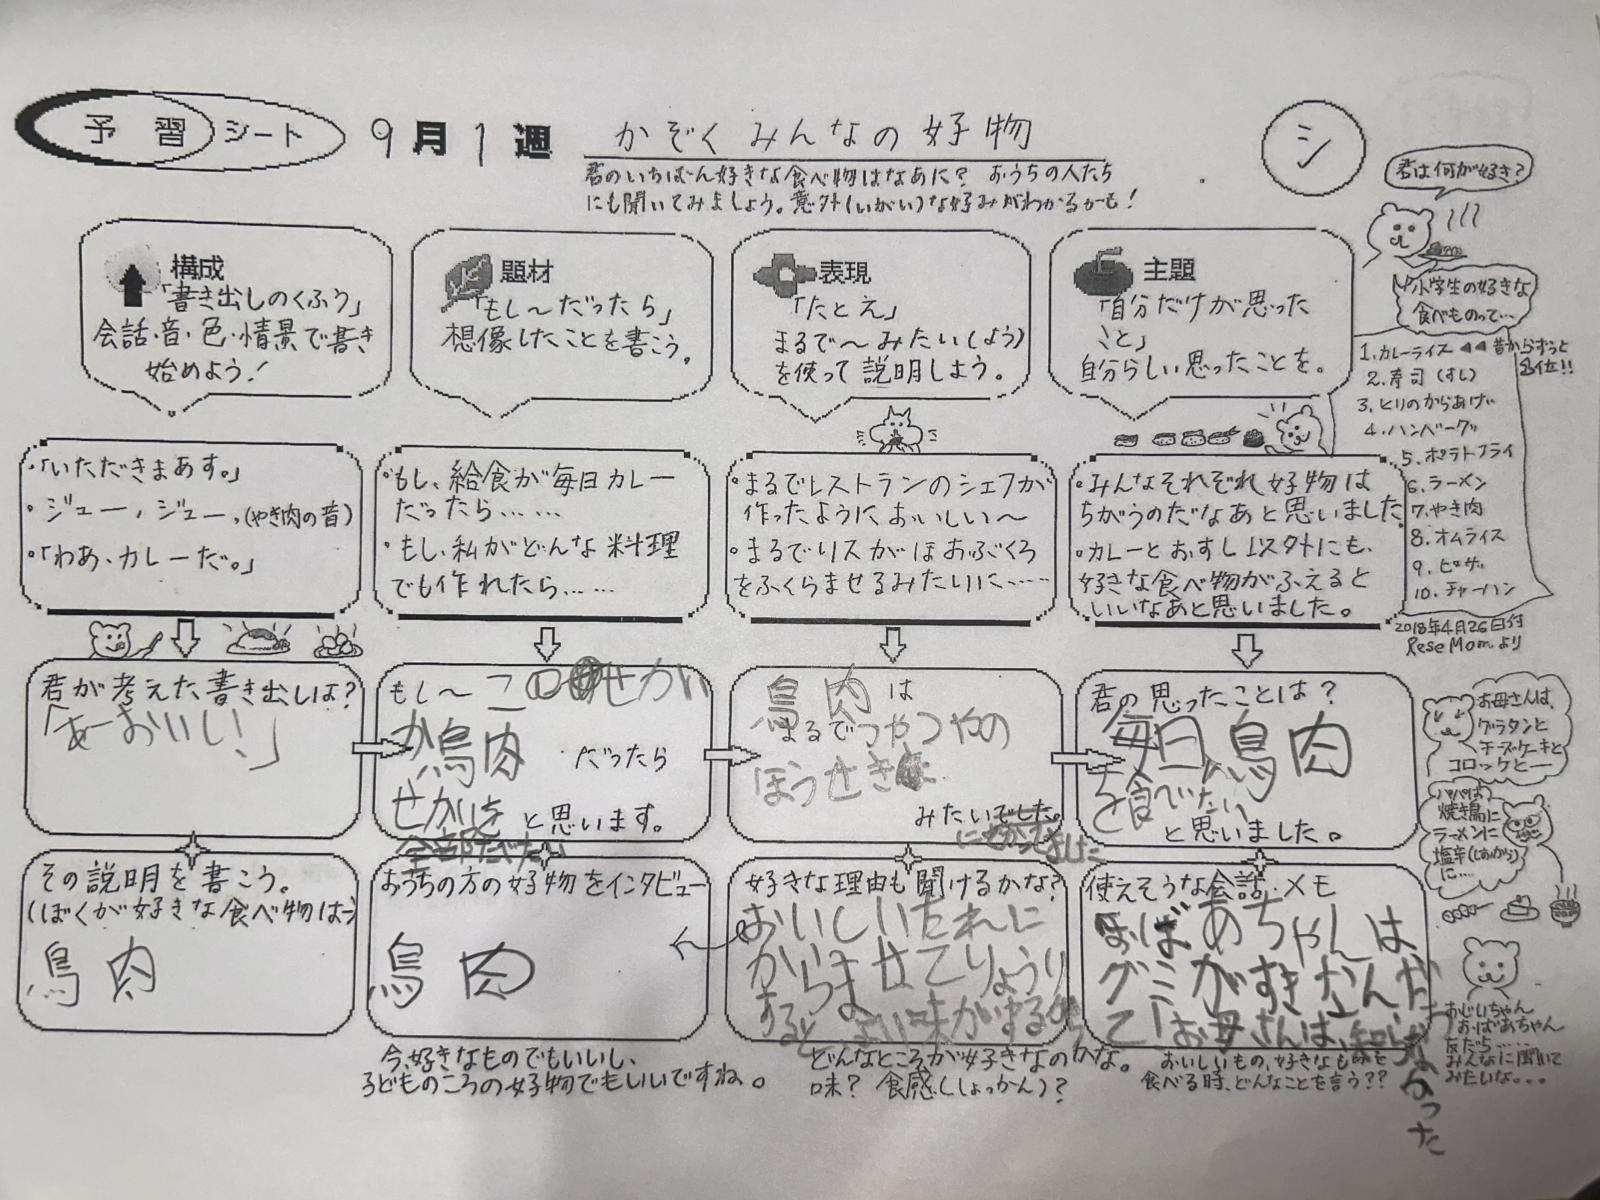 予習シート 9月1週 かぞくみんなの好物
シ
君のいちばん好きな食べ物はなあに? おうちの人たち
にも聞いてみましょう。意外(いがい)な好みがわかるかも!
君は何が好き?
小学生の好きな
食べものって…
1.カレーライス ◀◀昔からずっと
1位!!
2.寿司(すし)
3.とりのからあげ
4.ハンバーグ
5.ポテトフライ
6.ラーメン
7.やき肉
8.オムライス
9.ピザ
10.チャーハン
2018年4月26日付
ReseMomより
構成
「書き出しのくふう」
会話・音・色・情景で書き
始めよう!
題材
「もし〜だったら」
想像したことを書こう。
表現
「たとえ」
まるで〜みたい(よう)
を使って説明しよう。
主題
「自分だけが思った
こと」
自分らしい思ったことを。
・「いただきまあす。」
・ジュー、ジュー。(やき肉の音)
・「わあ、カレーだ。」
・もし、給食が毎日カレー
だったら……
・もし、私がどんな料理
でも作れたら……
・まるでレストランのシェフが
作ったようにおいしい〜
・まるでリスがほおぶくろ
をふくらませるみたいに……
・みんなそれぞれ好物は
ちがうのだなあと思いました
・カレーとおすし以外にも、
好きな食べ物がふえると
いいなあと思いました。
君が考えた書き出しは?
「あーおいし!」
もし〜 この せかい
が鳥肉 だったら
せかいを
全部たべたい
と思います。
鳥肉は
まるでつやつやの
ほうせき
みたいでした。
君の思ったことは?
毎日鳥肉
を食べたい
と思いました。
お母さんは、
グラタンと
チーズケーキと
コロッケと―
パパは
焼き鳥に
ラーメンに
塩辛(しおから)
に…
その説明を書こう。
(ぼくが好きな食べ物は)
鳥肉
おうちの方の好物をインタビュー
鳥肉
今、好きなものでもいいし、
子どものころの好物でもいいですね。
好きな理由も聞けるかな?
おいしいたれに
からませてりょうり
すると、よい味がするから
どんなところが好きなのかな。
味? 食感(しょっかん)?
使えそうな会話・メモ
おばあちゃんは
グミがすきなんだっ
て「お母さんは、知らなかった
おいしいもの、好きなものを
食べる時、どんなことを言う??
おじいちゃん
おばあちゃん
友だち……
みんなに聞いて
みたいな…